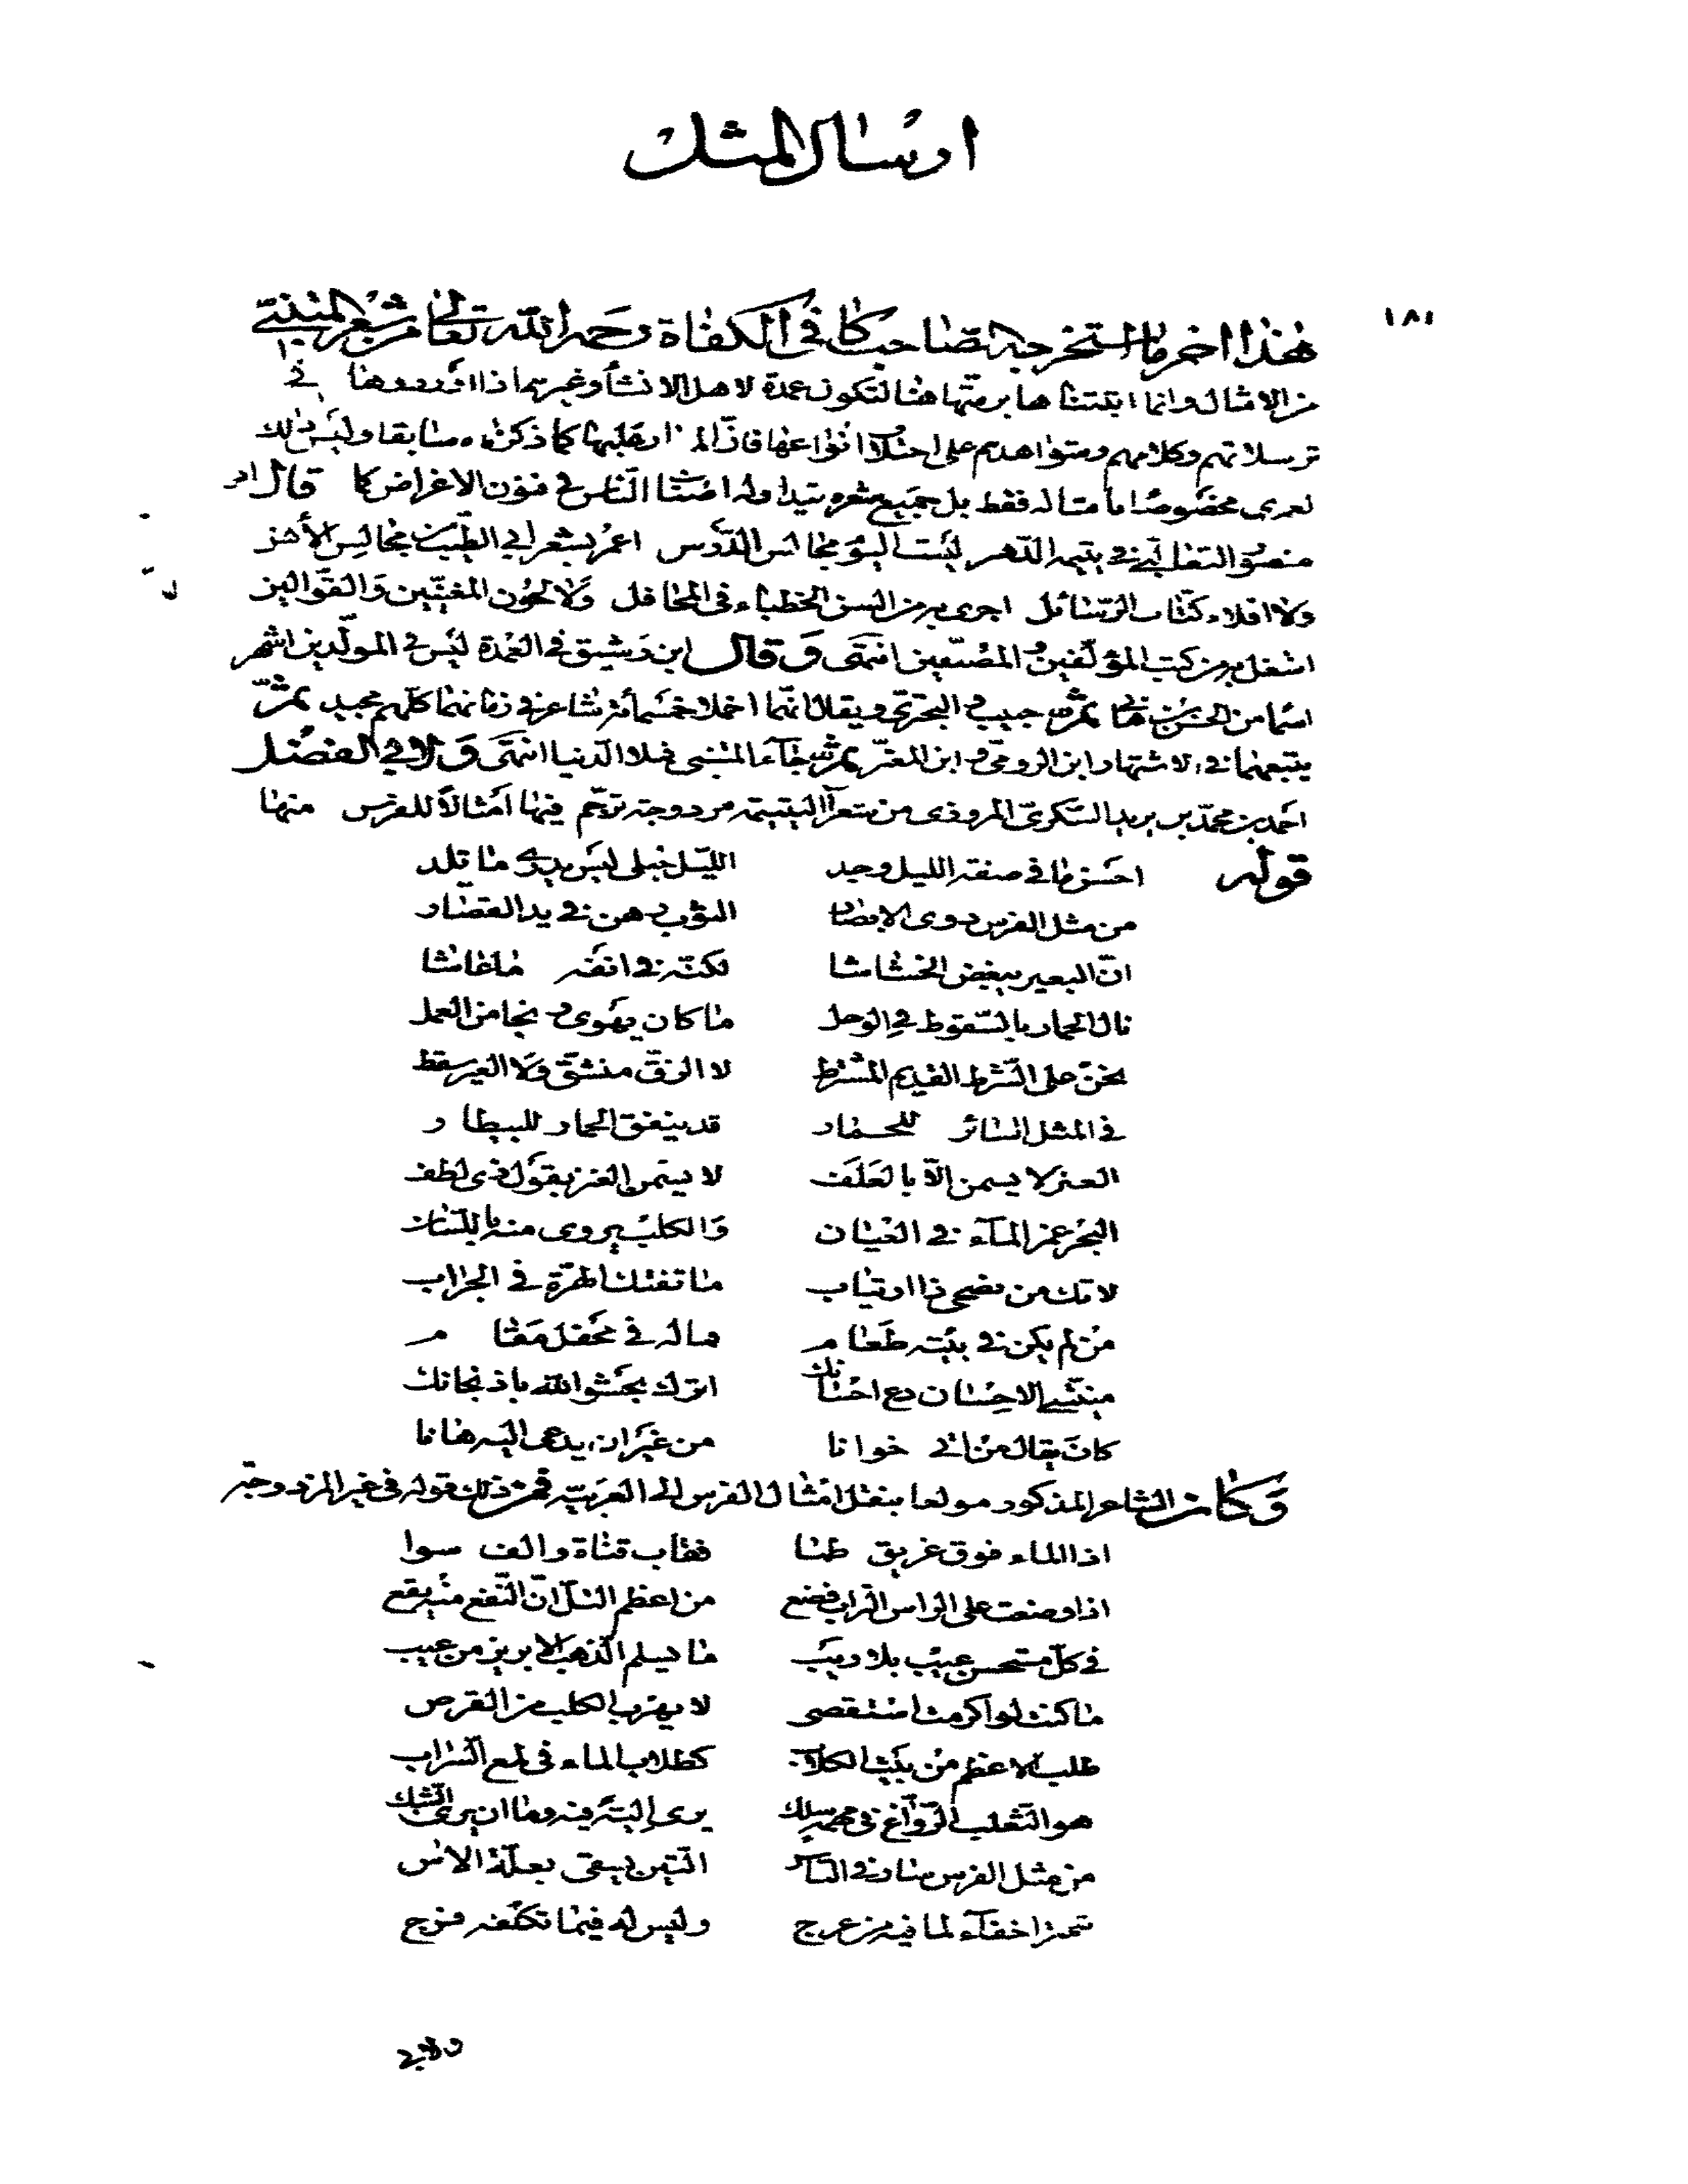 ارسال المثل
١٨١
هذا اخر ما استخرجه الصاحب كافى الكفاة رحمه الله تعالى من شعر المتنبى
من الامثال وانما اثبتناها برمتها هنا لتكون عدة لاهل الانشا وغيرهم اذا اوردوها فى
ترسلاتهم وكلامهم وشواهدهم على اختلاف انواعها كما ذكرناه سابقا وليس ذلك
لعمرى مخصوصا بامثاله فقط بل جميع شعره فى فنون الاغراض كما قال ابو
منصور الثعالبى فى يتيمة الدهر ليست اليوم مجالس الدرس اعمر بشعر ابى الطيب من مجالس الأنس
ولا اقلام كتاب الرسائل اجرى به من السن الخطباء فى المحافل ولا لحون المغنيين والقوالين
اشغل به من كتب المؤلفين والمصنفين انتهى وقال ابن رشيق فى العمدة ليس فى المولدين اشهر
اسما من الحسن بن هانى ثم حبيب والبحترى ويقال انهما اخملا خمسمائة شاعر فى زمانهما كلهم مجيد ثم
يتبعهما فى الاشتهار ابن الرومى وابن المعتز ثم جآء المتنبى فملا الدنيا انتهى ولابى الفضل
احمد بن محمد بن يزيد السكرى المروذى من شعرآ اليتيمة مزدوجة ترجم فيها امثالا للفرس منها
قوله احسن ما فى صفة الليل وجد الليل حبلى ليس يدرى ما تلد
من مثل الفرس ذوى الابصار الثوب رهن فى يد القصار
ان البعير يبغض الخشاشا لكنه فى انفه ما عاشا
نال الحمار بالسقوط فى الوحل ما كان يهوى ونجا من العمل
نحن على الشرط القديم المشترط لا الزق منشق ولا العير سقط
فى المثل السائر للحمار قد ينفق الحمار للبيطار
العنز لا يسمن الا بالعلف لا يسمن العنز بقول ذى لطف
البحر غمر المآء فى العيان والكلب يروى منه باللسان
لا تك من نصحى ذا ارتياب ما تفتك الهرة فى الجراب
من لم يكن فى بيته طعام ماله فى محفل مقام
منيتنى الاحسان دع احسانك اترك بحشو الله باذنجانك
كان يقال من اتى خوانا من غير ان يدعى اليه هانا
وكان الشاعر المذكور مولعا بنقل امثال الفرس الى العربية فمن ذلك قوله فى غير المزدوجة
اذا الماء فوق غريق طما فقاب قناة والف سوا
اذا وضعت على الراس التراب فضع من اعظم التل ان النفع منه يقع
فى كل مستحسن عيب بلا ريب ما يسلم الذهب الابريز من عيب
ما كنت لو اكرمت استقصى لا يهرب الكلب من القرص
طلب الاعظم من بيت الكلاب كطلاب الماء فى لمع السراب
هو الثعلب الرواغ فى مهمه سلك يرى الية فيه وما ان يرى الشبك
من مثل الفرس سار فى الناس التين يسقى بعلة الاس
تبختر اخفآء لما فيه من عرج وليس له فيما تكلفه فرج